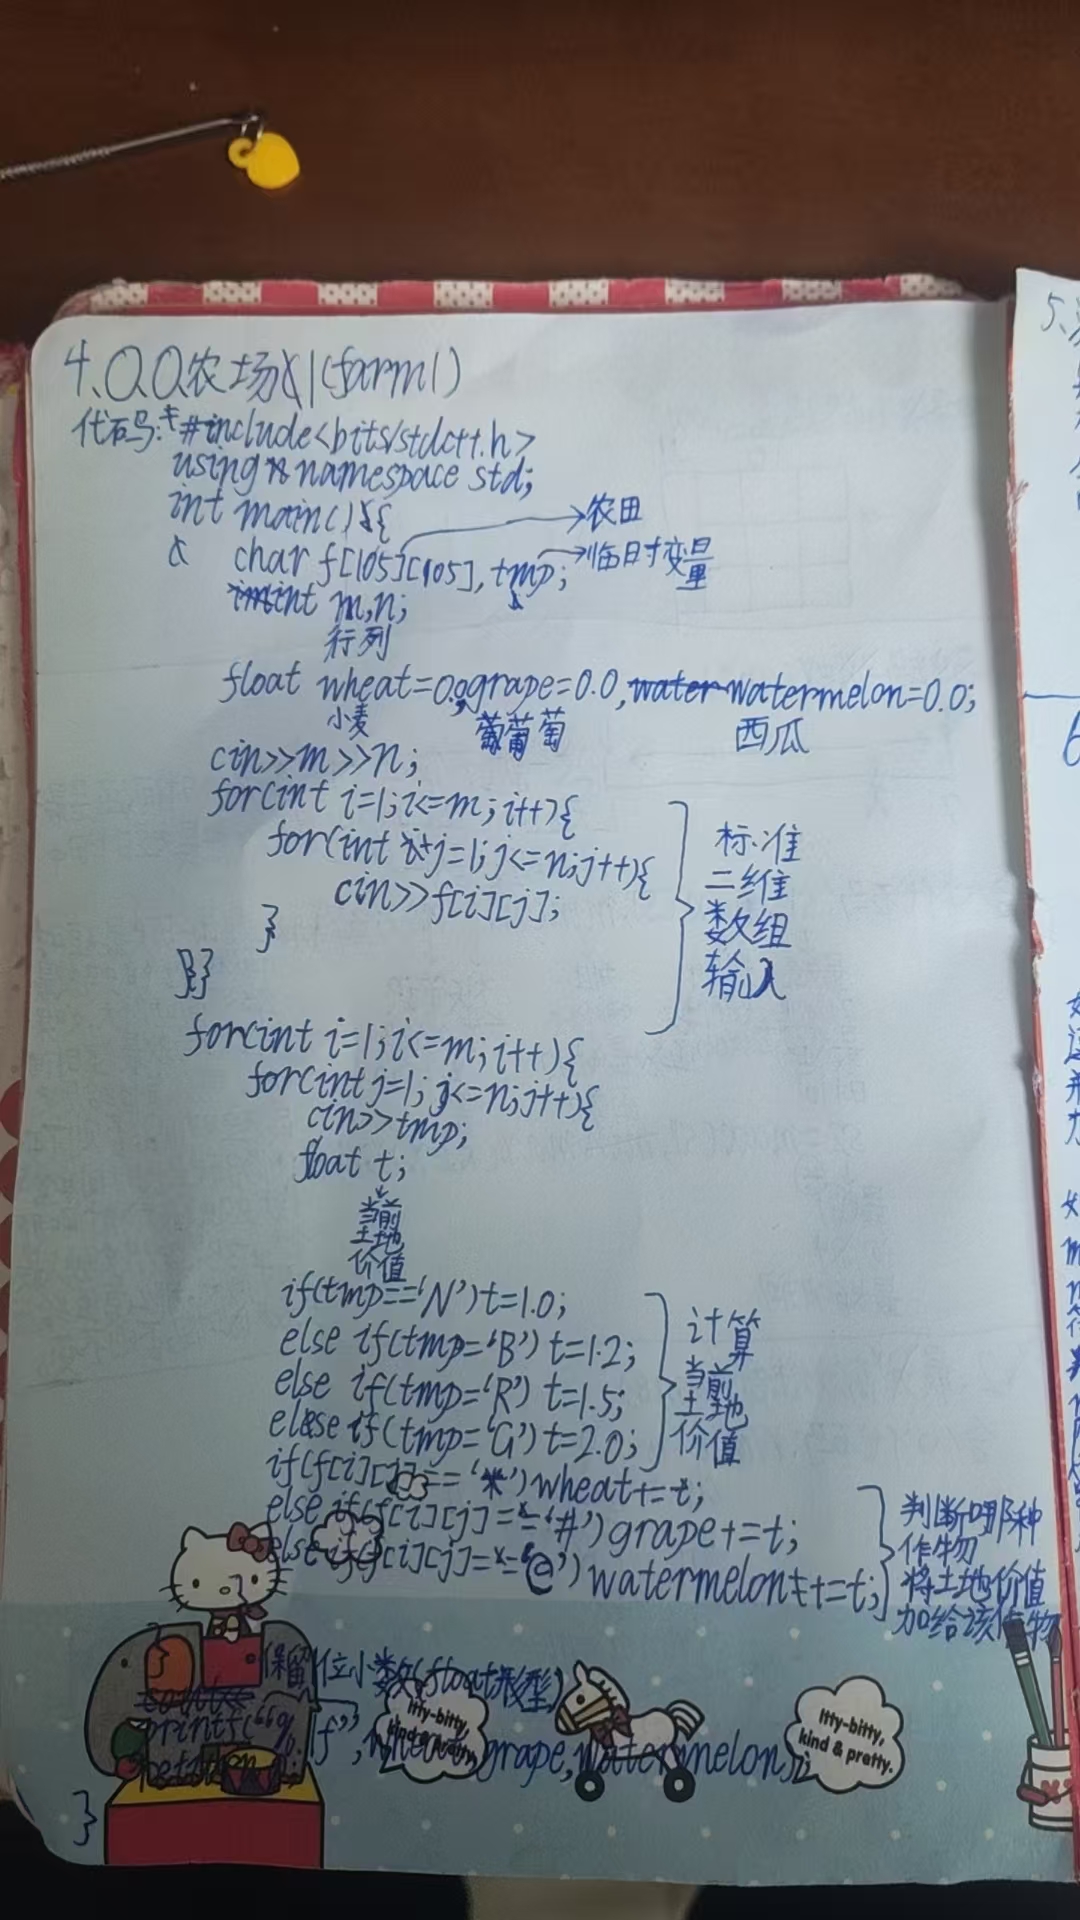 4、QQ农场1(farm1)
代码:#include<bits/stdc++.h>
using namespace std;
int main(){
char f[105][105],tmp;
农田
临时变量
int m,n;
行列
float wheat=0.0,grape=0.0,watermelon=0.0;
小麦 葡萄 西瓜
cin>>m>>n;
for(int i=1;i<=m;i++){
for(int j=1;j<=n;j++){
cin>>f[i][j];
}
}
标准
二维
数组
输入
for(int i=1;i<=m;i++){
for(int j=1;j<=n;j++){
cin>>tmp;
float t;
当前
土地
价值
if(tmp=='N')t=1.0;
else if(tmp='B') t=1.2;
else if(tmp='R') t=1.5;
else if(tmp='G') t=2.0;
计算
当前
土地
价值
if(f[i][j]=='*')wheat+=t;
else if(f[i][j]=='#')grape+=t;
else if(f[i][j]=='@')watermelon+=t;
判断哪种
作物
将土地价值
加给该作物
}
保留位小数(float形型)
printf("% f", grape,watermelon);
}
Itty-bitty,
kind & pretty.
Itty-bitty,
kind & pretty.
5、
6